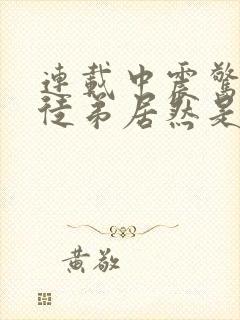 連載中震驚
徒弟居然是
黃敬